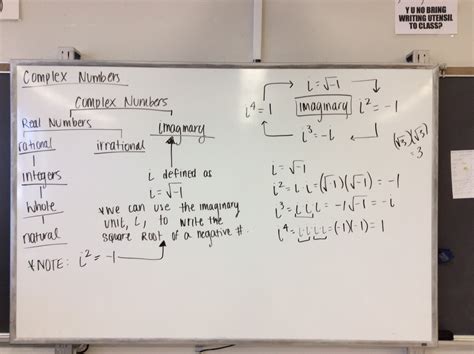 Y U NO BRING
WRITING UTENSIL
TO CLASS?
Complex Numbers
Complex Numbers
Real Numbers
imaginary
rational
irrational
integers
whole
natural
i defined as
i = √-1
*We can use the imaginary
unit, i, to write the
square root of a negative #.
*NOTE: i² = -1
i = √-1
i⁴ = 1
imaginary
i² = -1
i³ = -i
(√3)(√3)
= 3
i = √-1
i² = i·i = (√-1)(√-1) = -1
i³ = i·i·i = -1√-1 = -i
i⁴ = i·i·i·i = (-1)(-1) = 1